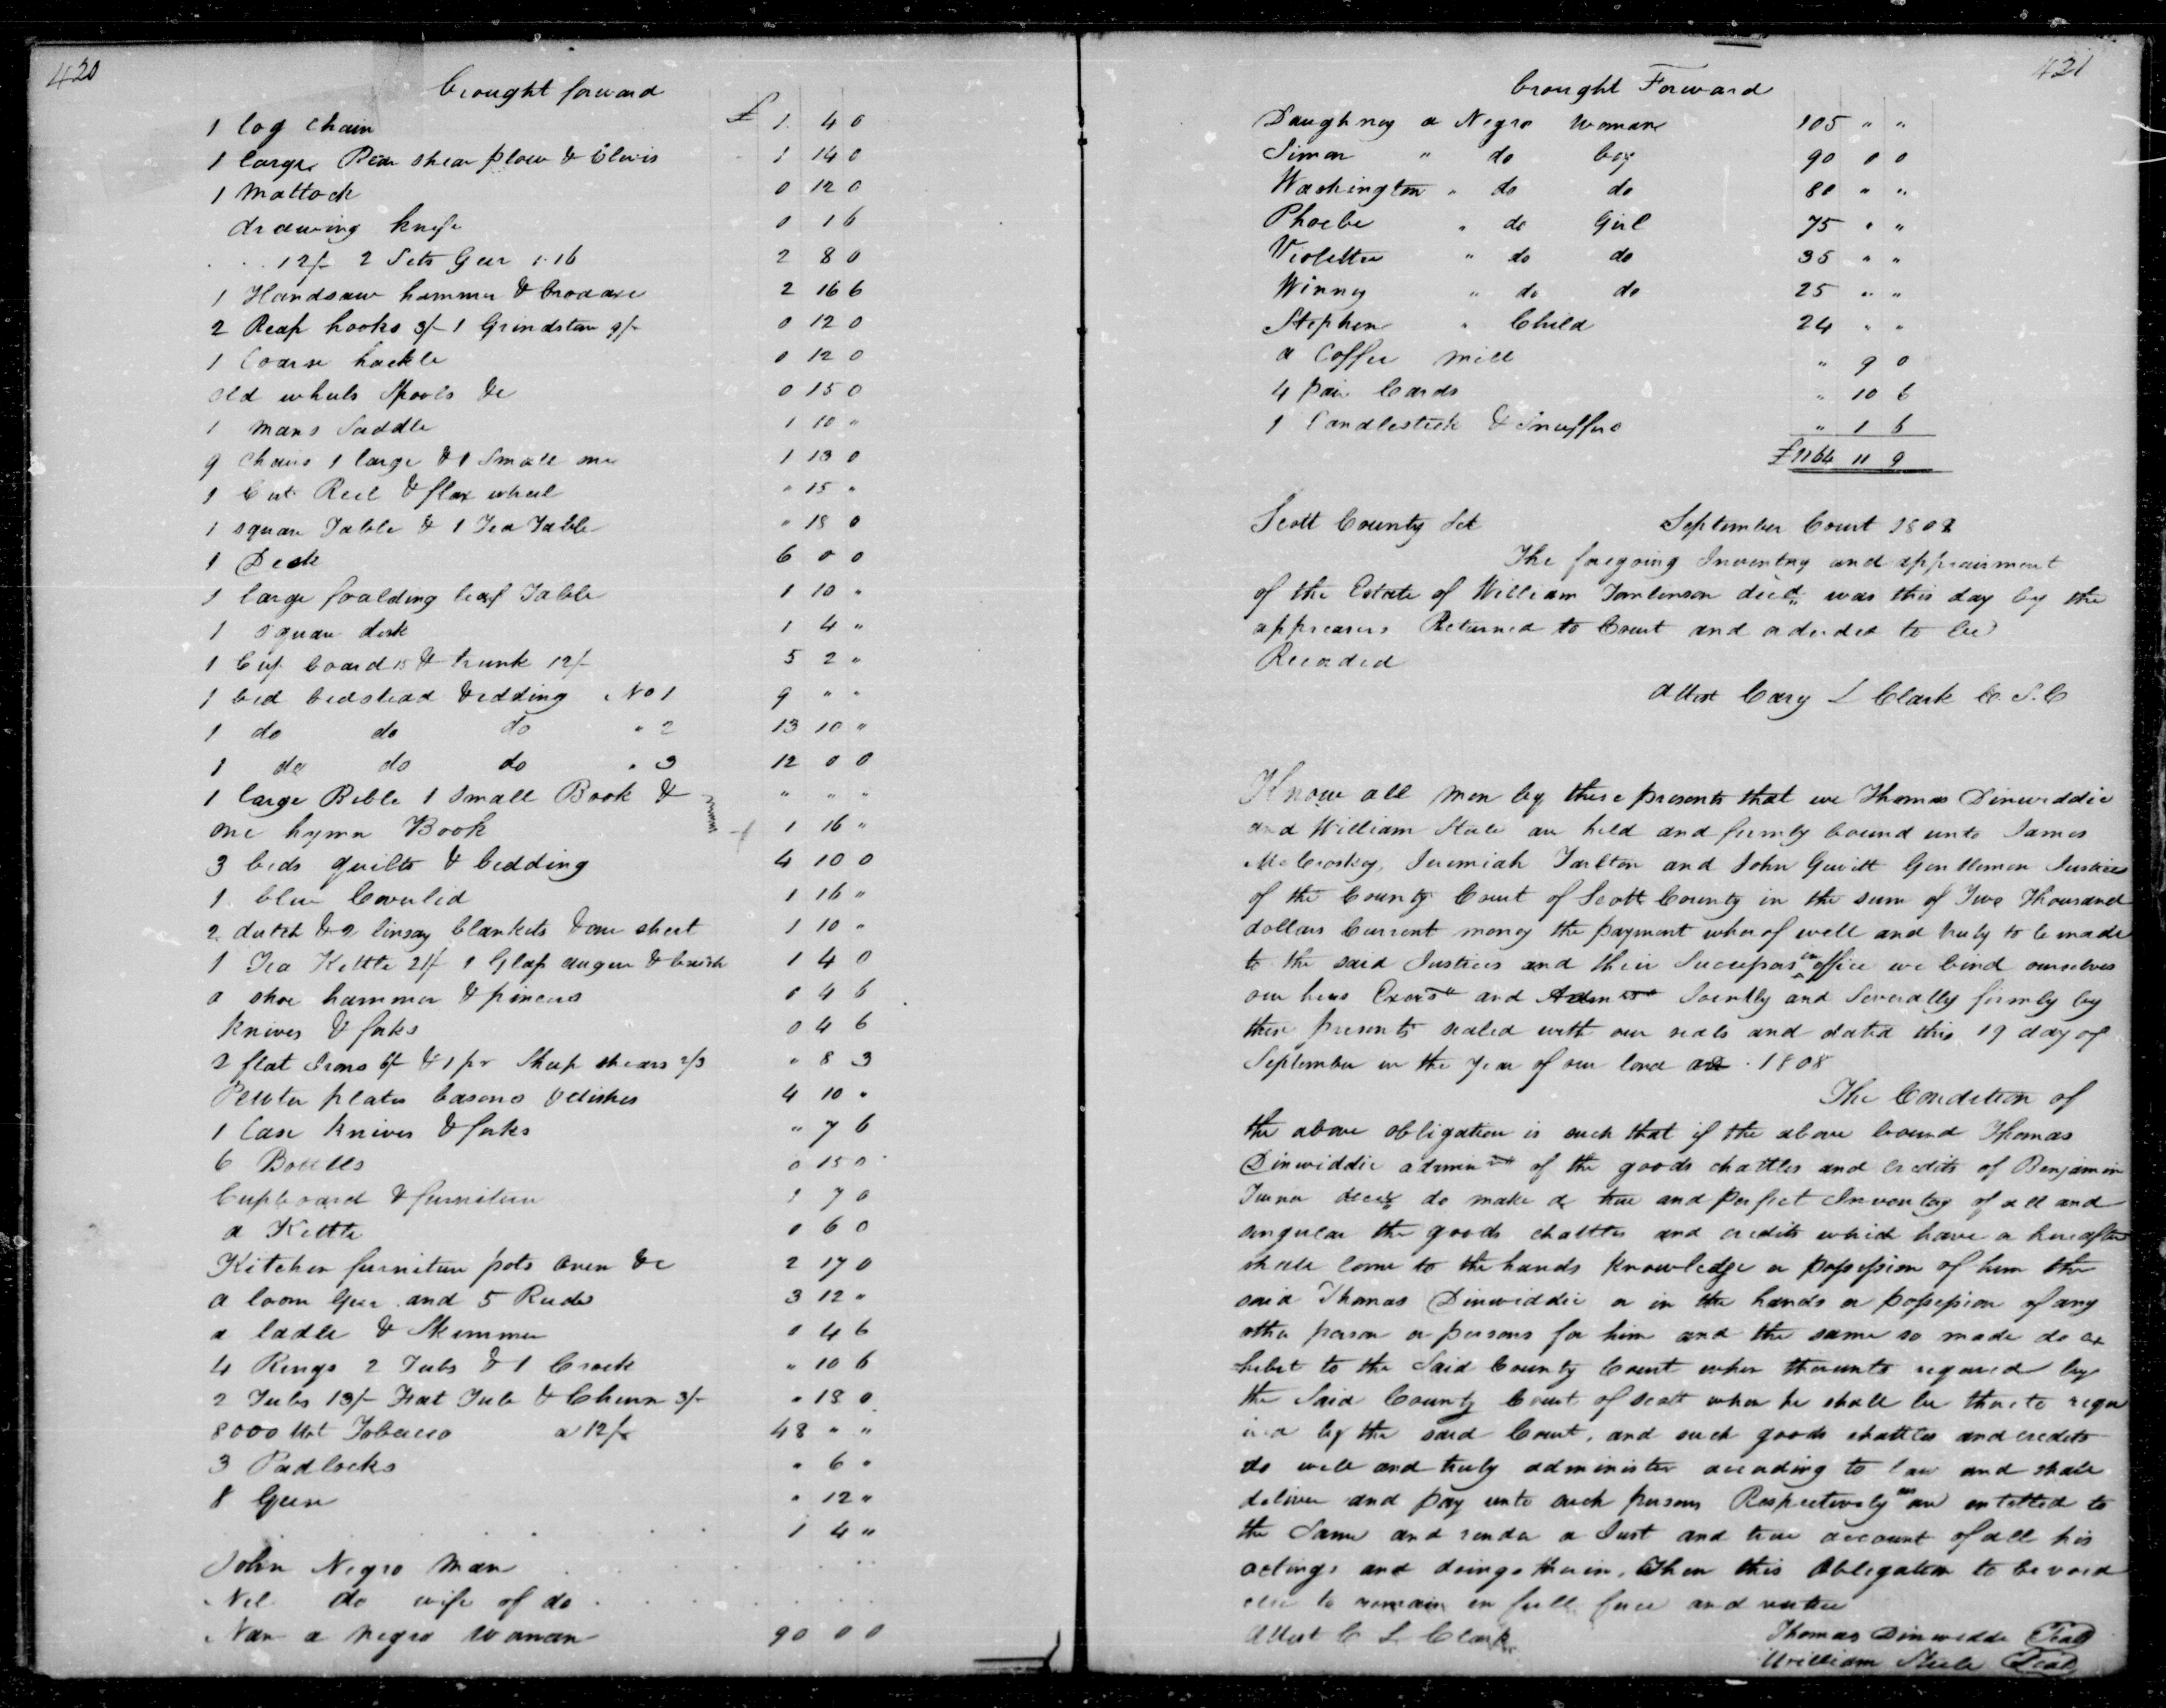 420
brought forward
1 log chain £ 1 4 0
1 large Bar shear plow & Clevis 1 14 0
1 Mattock 0 12 0
drawing knife 0 1 6
12/- 2 Sets Geer 1.16 2 8 0
1 Handsaw hammer & broadaxe 2 16 6
2 Reap hooks 3/- 1 Grindstone 9/- 0 12 0
1 Coarse hackle 0 12 0
old wheels Spools &c 0 15 0
1 mans Saddle 1 10 "
9 Chairs 1 large & 1 Small one 1 13 0
1 Cut Reel & flax wheel " 15 "
1 square Table & 1 Tea Table " 18 0
1 Desk 6 0 0
1 large foalding leaf Table 1 10 "
1 square desk 1 4 "
1 Cup board 15 & trunk 12/- 5 2 "
1 bed bedstead & edding No 1 9 " "
1 do do do " 2 13 10 "
1 do do do " 3 12 0 0
1 large Bible 1 Small Book & " " "
one hymn Book 1 16 "
3 beds quilts & bedding 4 10 0
1 blue Coverlid 1 16 "
2 dutch & 2 linsay blankets & one sheet 1 10 "
1 Tea Kettle 21/ 1 Glass auger & brush 1 4 0
a shoe hammer & pincers 0 4 6
knives & forks 0 4 6
2 flat Irons 6/ & 1 pr Sheep shears 2/3 " 8 3
Pewter plates basons & dishes 4 10 "
1 Case knives & forks " 7 6
6 Bottles 0 15 0
Cupboard & furniture 1 7 0
a Kettle 0 6 0
Kitchen furniture pots oven &c 2 17 0
a loom Geer and 5 Reeds 3 12 "
a ladle & Skimmer 0 4 6
4 Kings 2 Tubs & 1 Crock " 10 6
2 Tubs 13/- Fat Tub & Churn 3/- " 18 0
8000 Wt Tobacco a 12/- 48 " "
3 Padlocks " 6 "
8 Geese " 12 "
1 4 "
John Negro Man
Nel do wife of do
Nan a negro Woman 90 0 0
421
brought Forward
Daughney a Negro Woman 105 " "
Simon " do boy 90 0 0
Washington " do do 80 " "
Phoebe " do Girl 75 " "
Violetta " do do 35 " "
Winney " do do 25 " "
Stephen " Child 24 " "
a Coffee Mill " 9 0
4 pair Cards " 10 6
1 Candlestick & Snuffers " 1 6
£1164 11 9
Scott County Sct September Court 1808
The foregoing Inventory and appraisment
of the Estate of William Tomlinson decd was this day by the
appreasers Returned to Court and ordered to be
Recorded
Attest Cary L Clark C. S. C
Know all Men by these presents that we Thomas Dinwiddie
and William Steele are held and firmly bound unto James
McCroskey, Jeremiah Tarlton and John Gewitt Gentlemen Justices
of the County Court of Scott County in the sum of Two Thousand
dollars Current money the payment wherof well and truly to be made
to the said Justices and their Successors in office we bind ourselves
our heirs Exors and Admrs Jointly and Severally firmly by
these presents sealed with our seals and dated this 19 day of
September in the year of our lord 1808
The Condition of
the above obligation is such that if the above bound Thomas
Dinwiddie admin of the goods chattles and credits of Benjamin
Turner decd do make a true and perfect Inventory of all and
singular the goods chattles and credits which have or hereafter
shall come to the hands knowledge or possession of him the
said Thomas Dinwiddie or in the hands or possession of any
other person or persons for him and the same so made do ex
hibit to the Said County Court when thereunto required by
the Said County Court of Scott when he shall be thereto requ
ired by the said Court, and such goods chattles and credits
do well and truly administer according to law and shall
deliver and pay unto such persons Respectively as are entitled to
the Same and render a Just and true account of all his
actings and doings therein. Then this Obligation to be void
else to remain in full force and virtue
Attest C L Clark Thomas Dinwiddie Seal
William Steele Seal